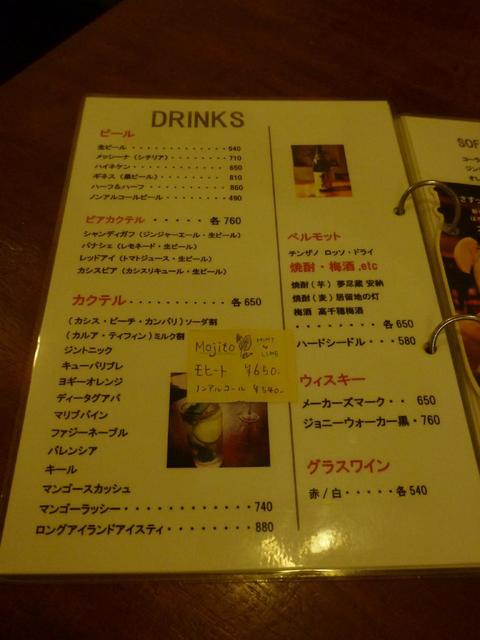 DRINKS
ビール
生ビール・・・・・・・・・・・・・640
メッシーナ（シチリア）・・・・・・・・710
ハイネケン・・・・・・・・・・・・650
ギネス（黒ビール）・・・・・・・・・810
ハーフ&ハーフ・・・・・・・・・・860
ノンアルコールビール・・・・・・・・490
ビアカクテル・・・・・各760
シャンディガフ（ジンジャーエール・生ビール）
パナシェ（レモネード・生ビール）
レッドアイ（トマトジュース・生ビール）
カシスビア（カシスリキュール・生ビール）
カクテル・・・・・・・・・・・各650
（カシス・ピーチ・カンパリ）ソーダ割
（カルア・ティフィン）ミルク割
ジントニック
キューバリブレ
ヨギーオレンジ
ディータグアバ
マリブパイン
ファジーネーブル
バレンシア
キール
マンゴースカッシュ
マンゴーラッシー・・・・・・・・・・740
ロングアイランドアイスティ・・・・・・・・880
Mojito
MINT
LIME
モヒート ¥650-
ノンアルコール ¥540-
ベルモット
チンザノ ロッソ・ドライ
焼酎・梅酒 ,etc
焼酎（芋） 夢尽蔵 安納
焼酎（麦）居留地の灯
梅酒 高千穂梅酒
・・・・・・・・各650
ハードシードル・・・580
ウィスキー
メーカーズマーク・・650
ジョニーウォーカー黒・760
グラスワイン
赤/白・・・・・各540
SOF